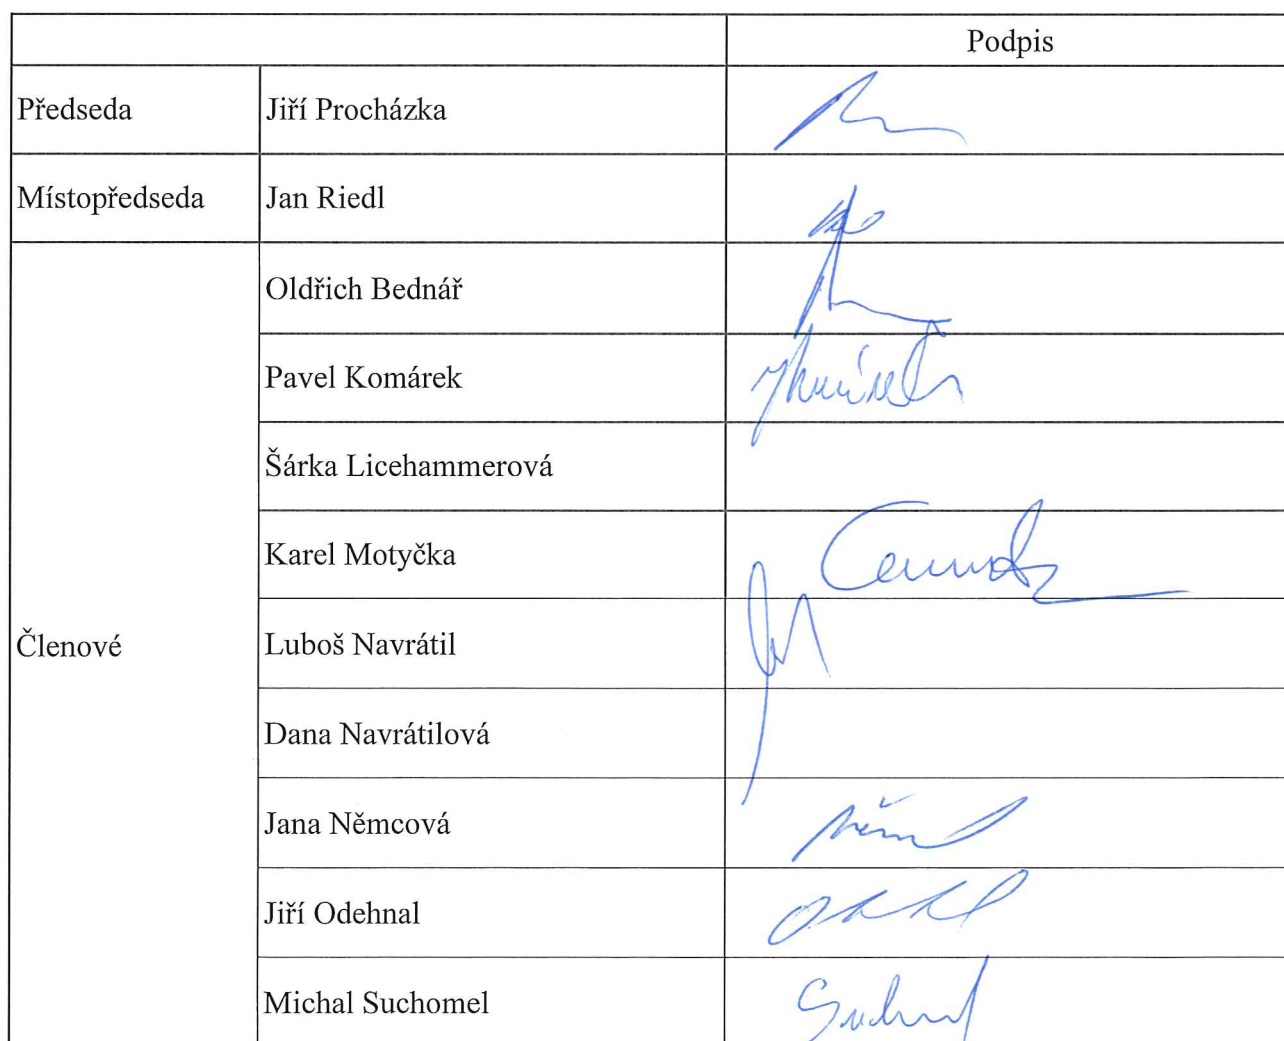 Podpis
Předseda Jiří Procházka
Místopředseda Jan Riedl
Oldřich Bednář
Pavel Komárek
Šárka Licehammerová
Karel Motyčka
Členové Luboš Navrátil
Dana Navrátilová
Jana Němcová
Jiří Odehnal
Michal Suchomel